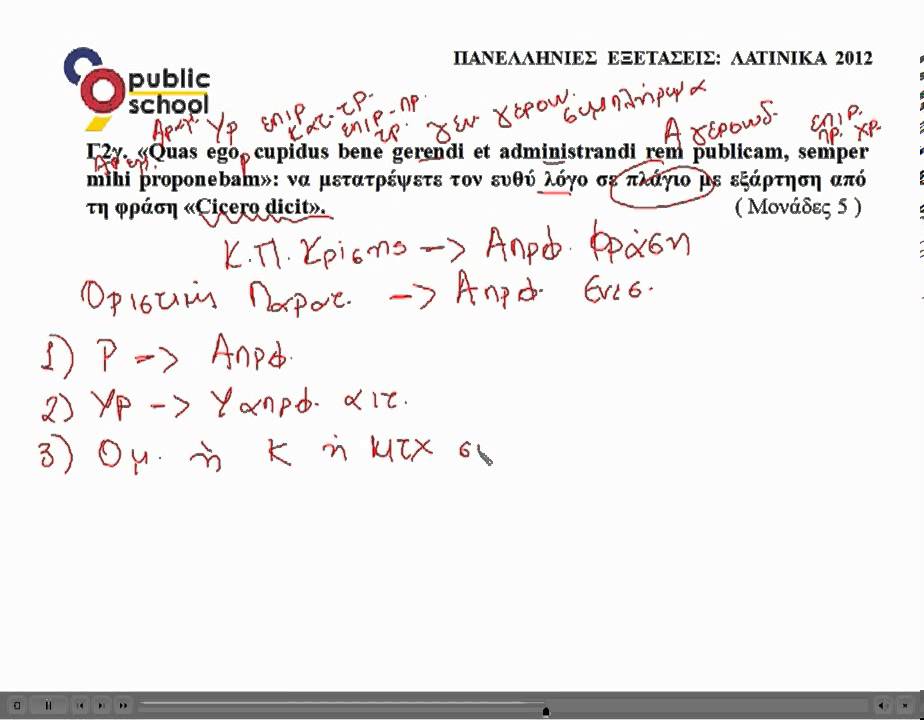 ΠΑΝΕΛΛΗΝΙΕΣ ΕΞΕΤΑΣΕΙΣ: ΛΑΤΙΝΙΚΑ 2012
public
school
Υρ επιρ κατ. τρ. επιρ. πρ. τρ. γεν γερουν. συμπλήρωμα Α γερουνδ. επιρ. πρ. χρ.
Γ2γ. «Quas ego, cupidus bene gerendi et administrandi rem publicam, semper
mihi proponebam»: να μετατρέψετε τον ευθύ λόγο σε πλάγιο με εξάρτηση από
τη φράση «Cicero dicit». ( Μονάδες 5 )
Κ.Π. Κρίσης --> Απρφ. Φράση
Οριστική Παρατ. --> Απρφ. Ενεσ.
1) Ρ --> Απρφ.
2) Υρ --> Υαπρφ. αιτ.
3) Ομ. ή Κ ή ΜΤΧ σ